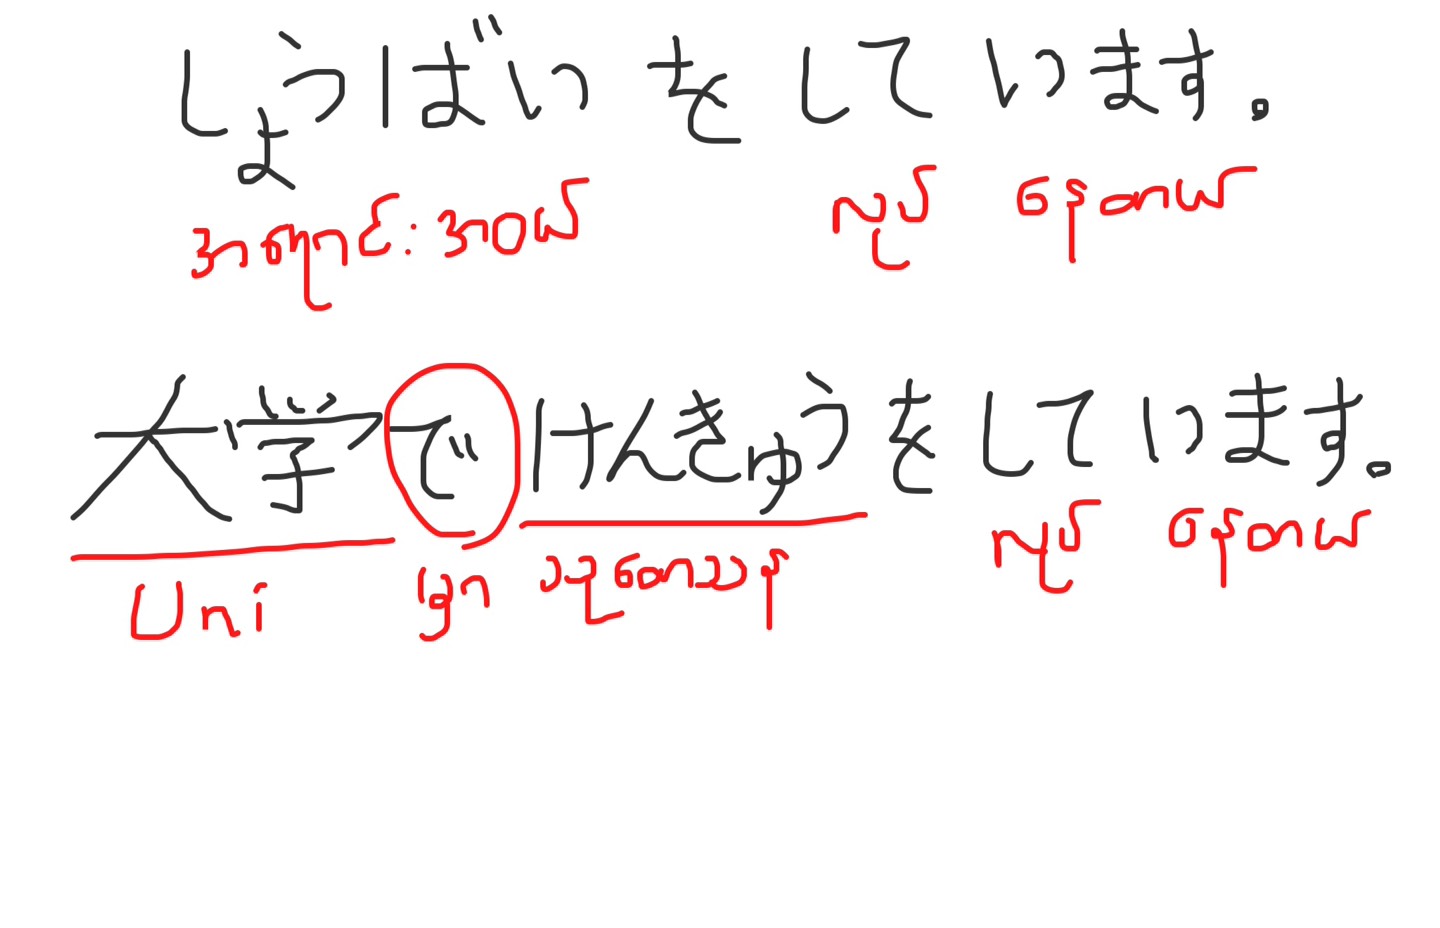 しょうばいをしています。
အရောင်းအဝယ် လုပ် နေတယ်
大学でけんきゅうをしています。
Uni မှာ သုတေသန လုပ် နေတယ်